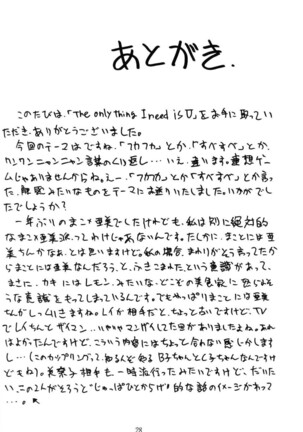 あとがき.
このたびは、「The only thing I need is U」をお手に取っていただき、ありがとうございました。
今回のテーマはですね、「フカフカ」とか、「すべすべ」とか、
ワンワンニャンニャン言葉のくり返し…いえ、違います。連想ゲー
ムじゃありませんからね。えー、「フカフカ」とか「すべすべ」とか言っ
た、触感みたいなものをテーマにお送りいたしました。いかがでし
たでしょうか?
一年ぶりのまこ×亜美でしたけれども、私は別に絶対的
なまこ×亜美派ってわけじゃあないんです。たしかに、まことには亜
美ちゃんかなぁ、とは思いますけど。私の場合、まわりがそう言ってたか
らまことには亜美なんだろう、と、ふきこまれた、という意識があって、
まさに、カキにはレモン、みたいな、どこぞの美食家に怒られそ
うな意識をもってしまっているんです。でもやっぱりまことには亜美
さんがしっくりきますね。レイが相手だと、ちょっと古いですけど、TV
でレイちんと
よかったんですけど、こういう内容にはちょっと合わない感じがしますし
…。(このカップリングって、知る人ぞ知る
ども。)美奈子相手も、一時流行ったみたいですけど、だいた
い、この2人がそろうと"じゃっぱひとからげ"的な話のイメージがわっ
て…。
28